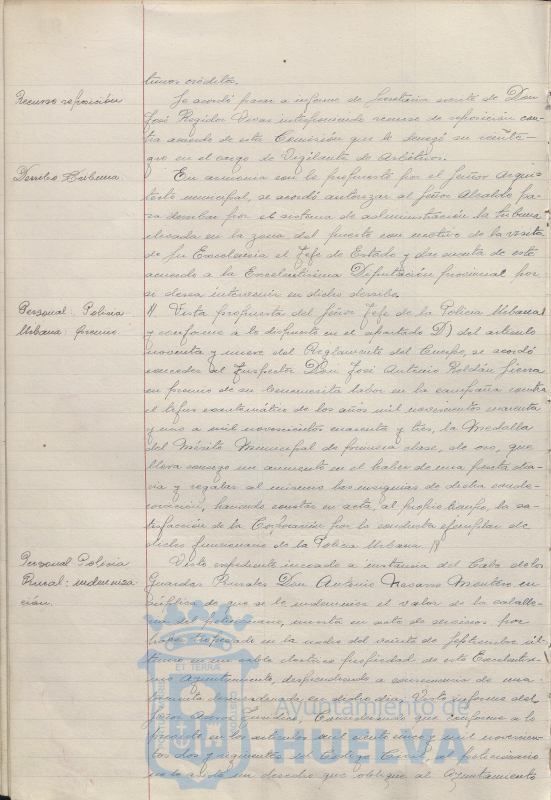 tuno créditos.
Recurso reposición
Se acordó pasar a informe de Secretaría escrito de Don
José Regidor Vivas interponiendo recurso de reposición con-
tra acuerdo de esta Comisión que le denegó su reinte-
gro en el cargo de Vigilante de Arbitrios.
Derribo Tribuna.
En armonía con lo propuesto por el Señor Arqui-
tecto municipal, se acordó autorizar al Señor Alcalde pa-
ra derribar por el sistema de administración la tribuna
elevada en la zona del puerto con motivo de la visita
de Su Excelencia el Jefe de Estado y dar cuenta de este
acuerdo a la Excelentísima Diputación provincial por
si desea intervenir en dicho derribo.
Personal: Policía
Urbana: premio.
Vista propuesta del Señor Jefe de la Policía Urbana
y conforme a lo dispuesto en el apartado D) del artículo
noventa y nueve del Reglamento del Cuerpo, se acordó
conceder al Inspector Don José Antonio Roldán Sierra
en premio de su benemérita labor en la campaña contra
el tifus exantemático de los años mil novecientos cuarenta
y uno a mil novecientos cuarenta y tres, la Medalla
del Mérito Municipal de primera clase, de oro, que
lleva consigo un aumento en el haber de una peseta dia-
ria y regalar al mismo las insignias de dicha conde-
coración, haciendo constar en acta, al propio tiempo, la sa-
tisfacción de la Corporación por la conducta ejemplar de
dicho funcionario de la Policía Urbana.
Personal Policía
Rural: indemniza-
ción.
Visto expediente incoado a instancia del Cabo de los
Guardas Rurales Don Antonio Navarro Montero, en
súplica de que se le indemnice el valor de la caballe-
ría del peticionario, muerta en acto de servicio por
haber tropezado en la noche del veinte de Septiembre úl-
timo en un cable propiedad de este Excelentísi-
mo Ayuntamiento, desprendido a consecuencia de una
tormenta desencadenada en dicho día; Visto informe del
Considerando que conforme a lo
previsto en los artículos mil ciento cinco y mil novecien-
tos dos y siguientes del Código Civil, al peticionario
no le asiste un derecho que obligue al Ayuntamiento
ET TERRA
Ayuntamiento de
HUELVA